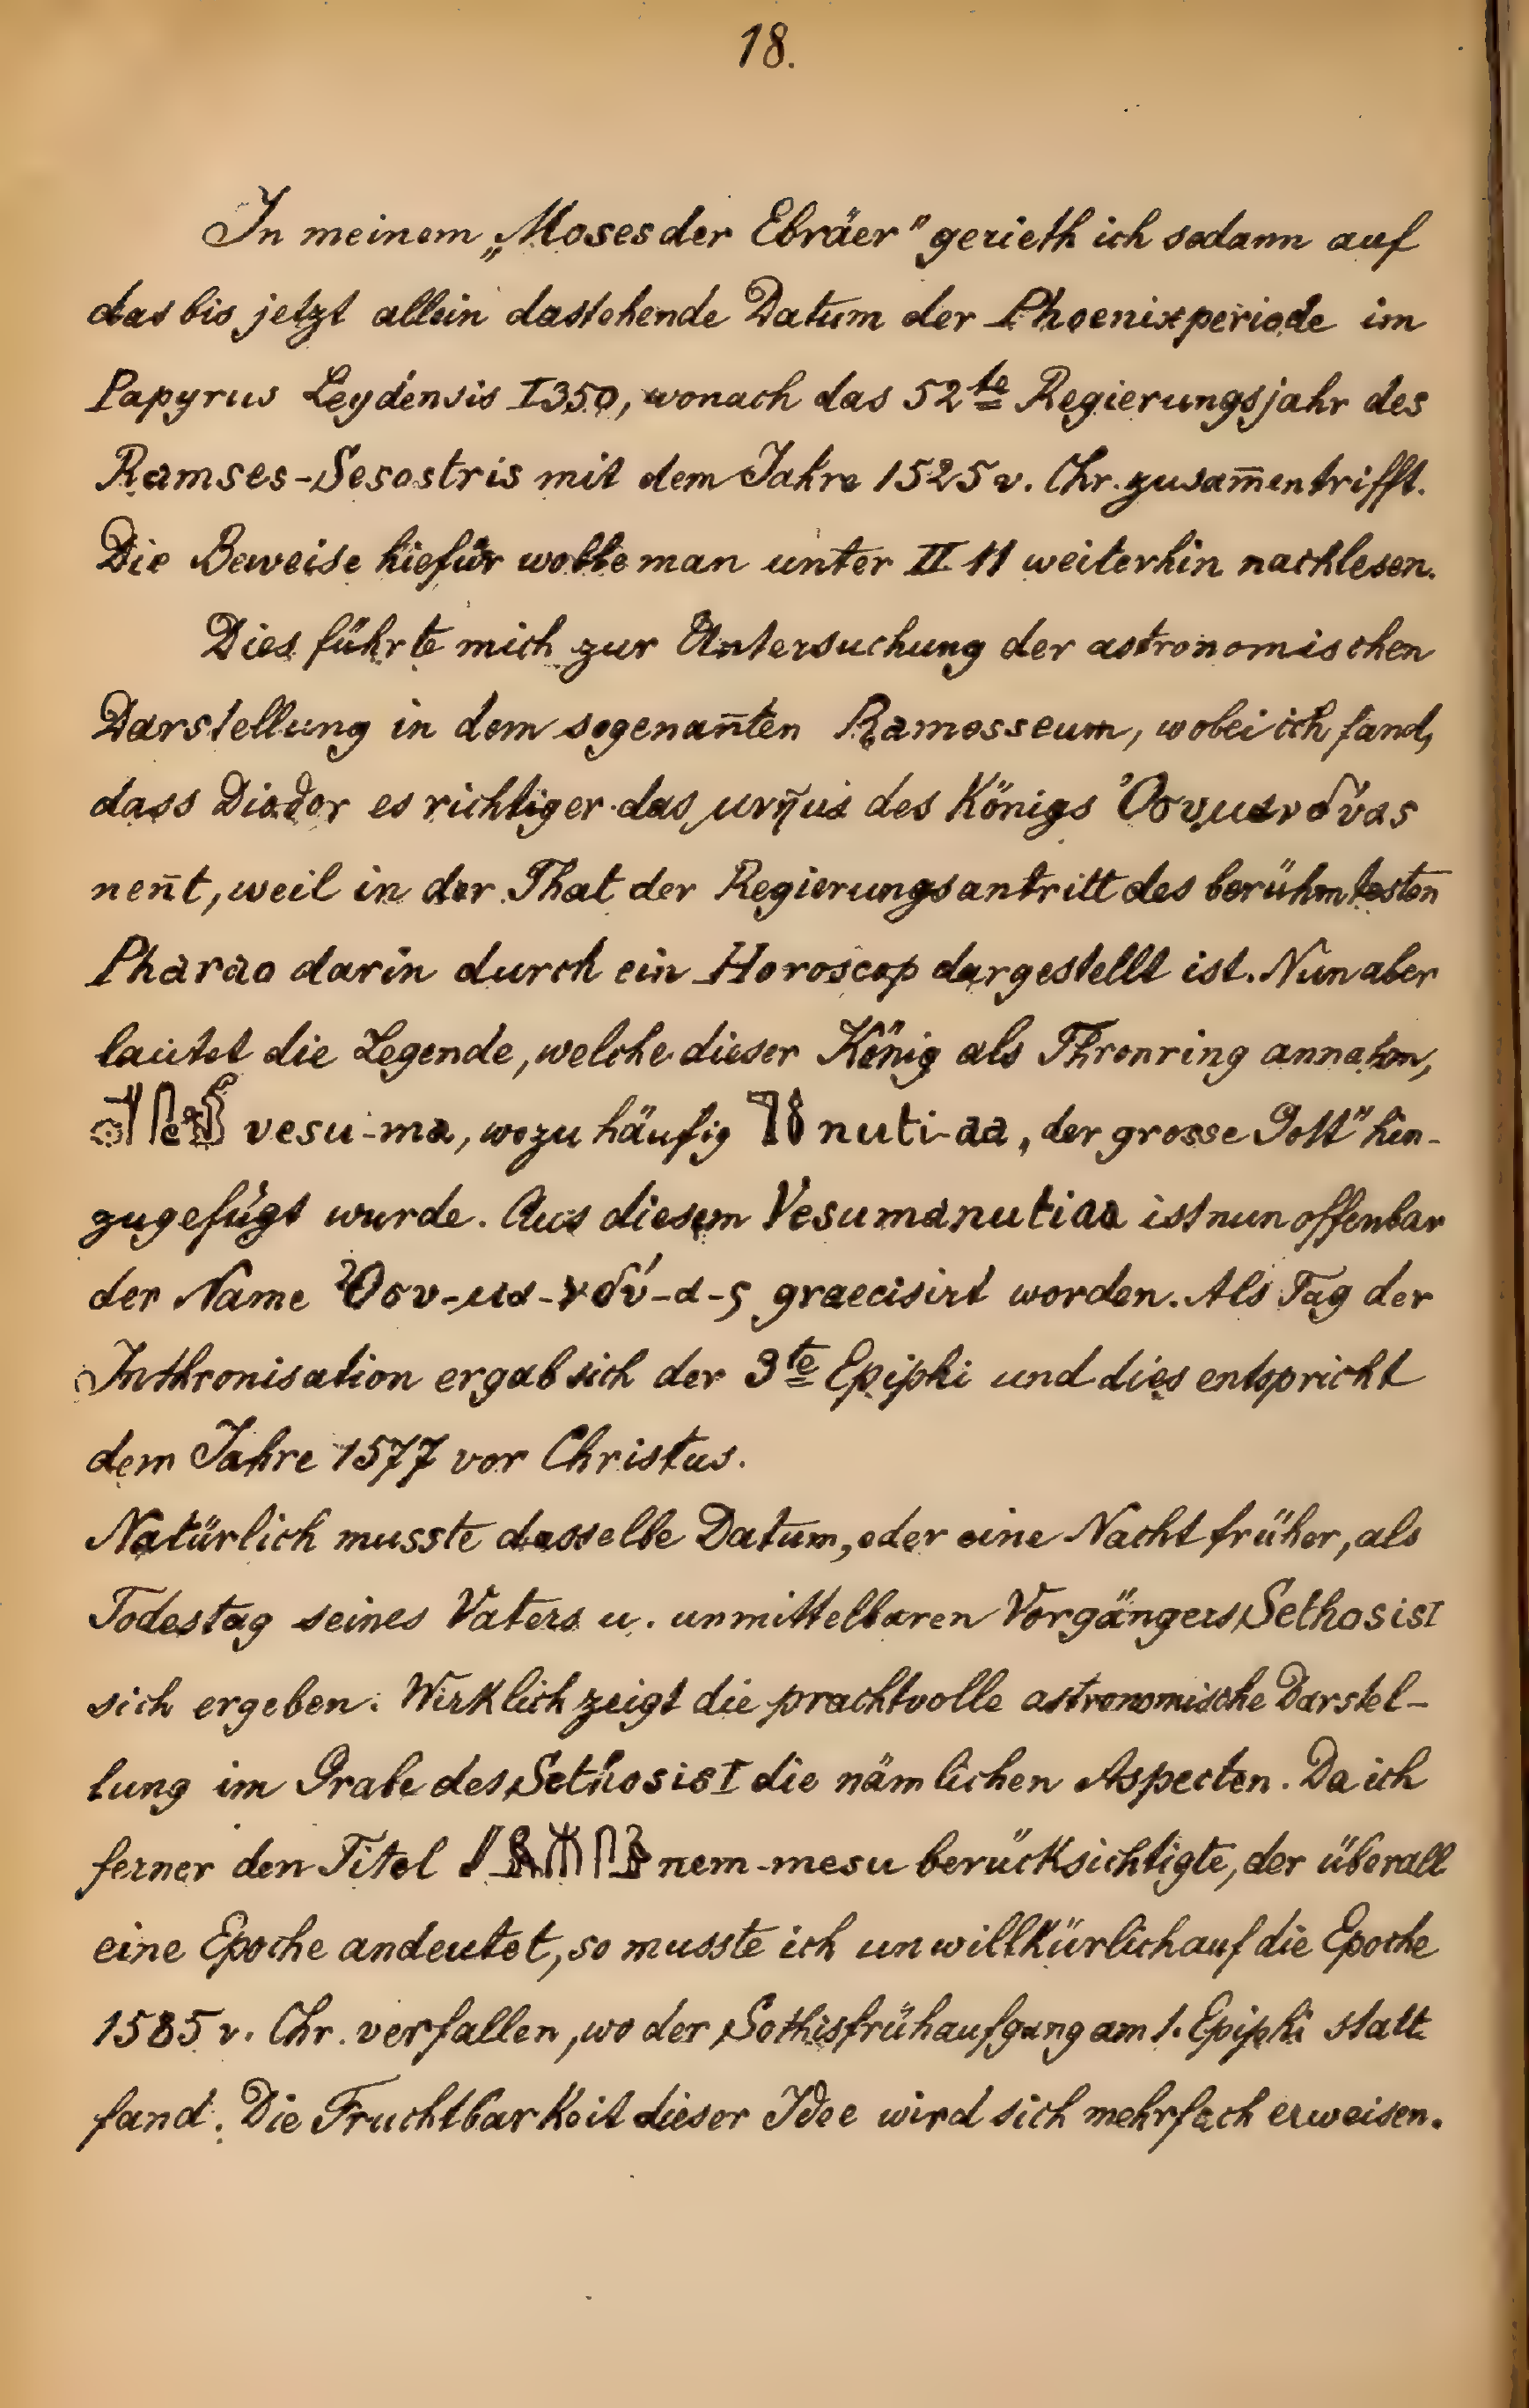 18.
In meinem „Moses der Ebräer" gerieth ich sodann auf
das bis jetzt allein dastehende Datum der Phoenixperiode im
Papyrus Leydensis I 350, wonach das 52te Regierungsjahr des
Ramses-Sesostris mit dem Jahre 1525 v. Chr. zusam̅entrifft.
Die Beweise hiefür wolle man unter II 11 weiterhin nachlesen.
Dies führte mich zur Untersuchung der astronomischen
Darstellung in dem sogenan̅ten Ramesseum, wobei ich fand,
dass Diodor es richtiger das μνῆμα des Königs Ὀσυμανδύας
nen̅t, weil in der That der Regierungsantritt des berühmtesten
Pharao darin durch ein Horoscop dargestellt ist. Nun aber
lautet die Legende, welche dieser König als Thronring annahm,
vesu-ma, wozu häufig nuti-aa „der grosse Gott" hin-
zugefügt wurde. Aus diesem Vesumanutiaa ist nun offenbar
der Name Ὀσυ-μα-νδύ-α-ς graecisirt worden. Als Tag der
Inthronisation ergab sich der 3te Epiphi und dies entspricht
dem Jahre 1577 vor Christus.
Natürlich musste dasselbe Datum, oder eine Nacht früher, als
Todestag seines Vaters u. unmittelbaren Vorgängers Sethosis I
sich ergeben. Wirklich zeigt die prachtvolle astronomische Darstel-
lung im Grabe des Sethosis I die nämlichen Aspecten. Da ich
ferner den Titel nem-mesu berücksichtigte, der überall
eine Epoche andeutet, so musste ich unwillkürlich auf die Epoche
1585 v. Chr. verfallen, wo der Sothisfrühaufgang am 1. Epiphi statt
fand. Die Fruchtbarkeit dieser Idee wird sich mehrfach erweisen.